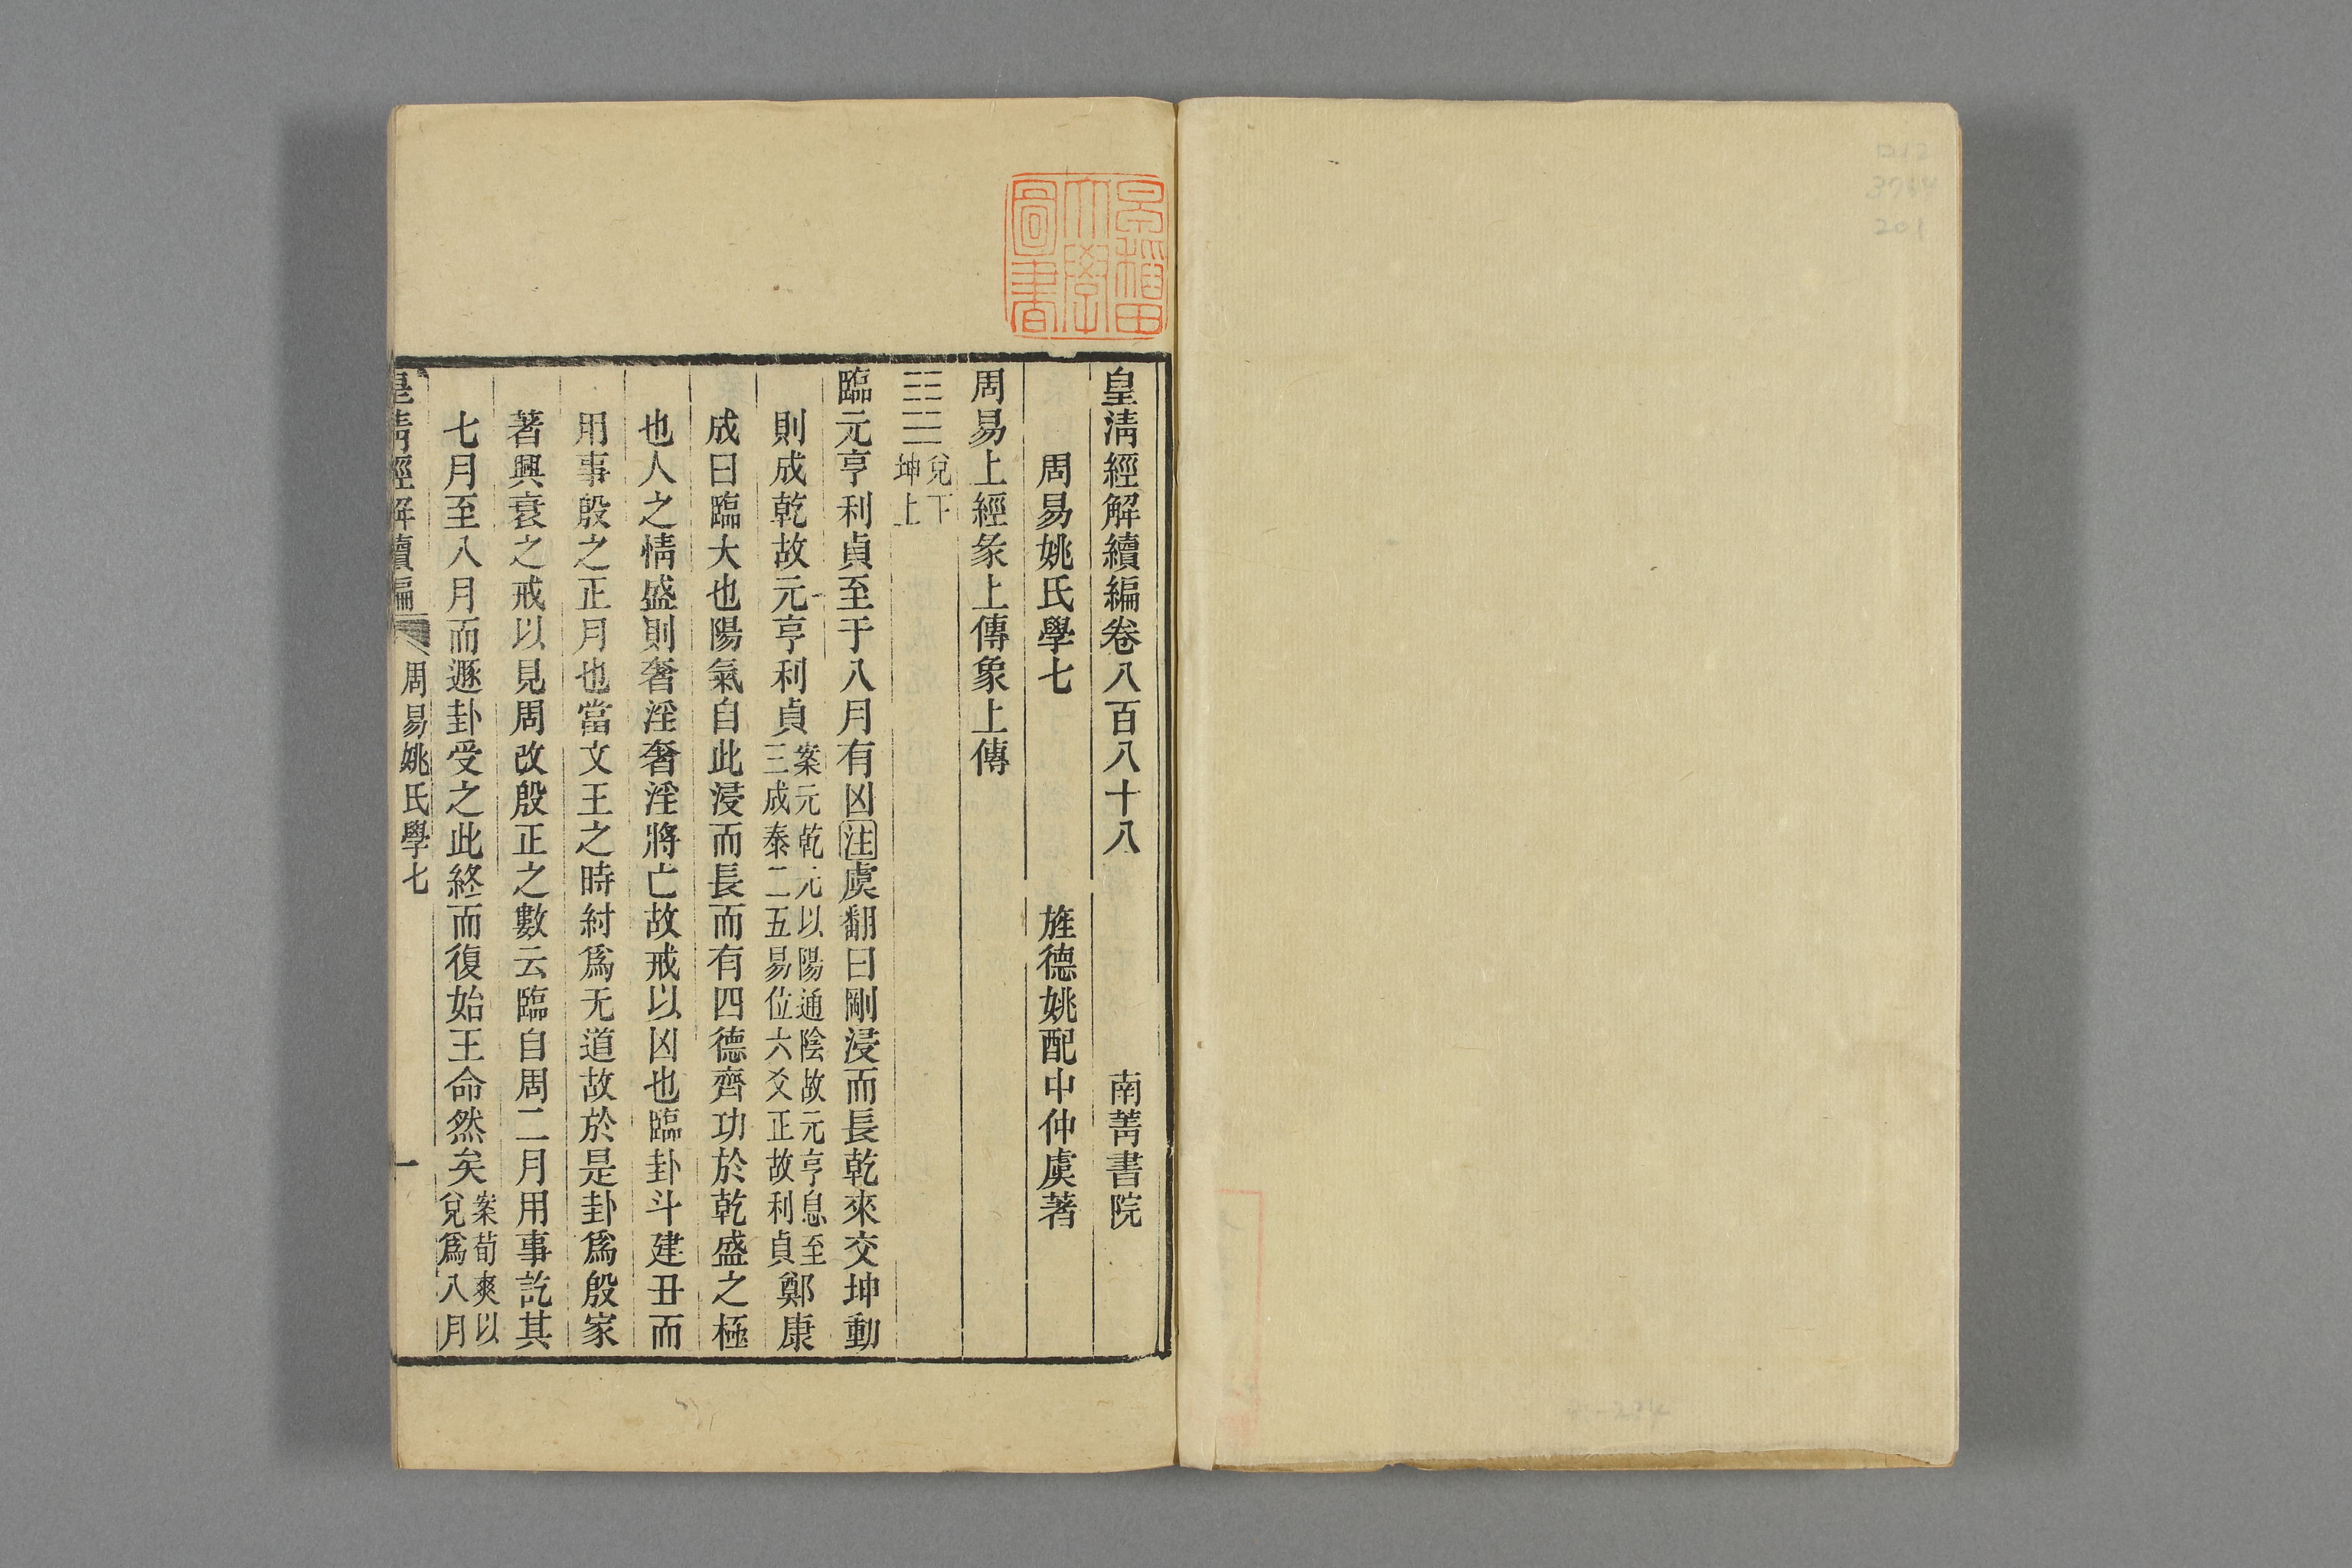 皇淸經解續編卷八百八十八　南菁書院
周易姚氏學七　旌德姚配中仲虞著
周易上經彖上傳象上傳
兌下
坤上
臨元亨利貞至于八月有凶注虞翻曰剛浸而長乾來交坤動
則成乾故元亨利貞
案元乾元以陽通陰故元亨息至
三成泰二五易位六爻正故利貞
鄭康
成曰臨大也陽氣自此浸而長而有四德齊功於乾盛之極
也人之情盛則奢淫奢淫將亡故戒以凶也臨卦斗建丑而
用事殷之正月也當文王之時紂爲无道故於是卦爲殷家
著興衰之戒以見周改殷正之數云臨自周二月用事訖其
七月至八月而遯卦受之此終而復始王命然矣
案荀爽以
兌爲八月
皇淸經解續編　周易姚氏學七　一
早稻田大學圖書